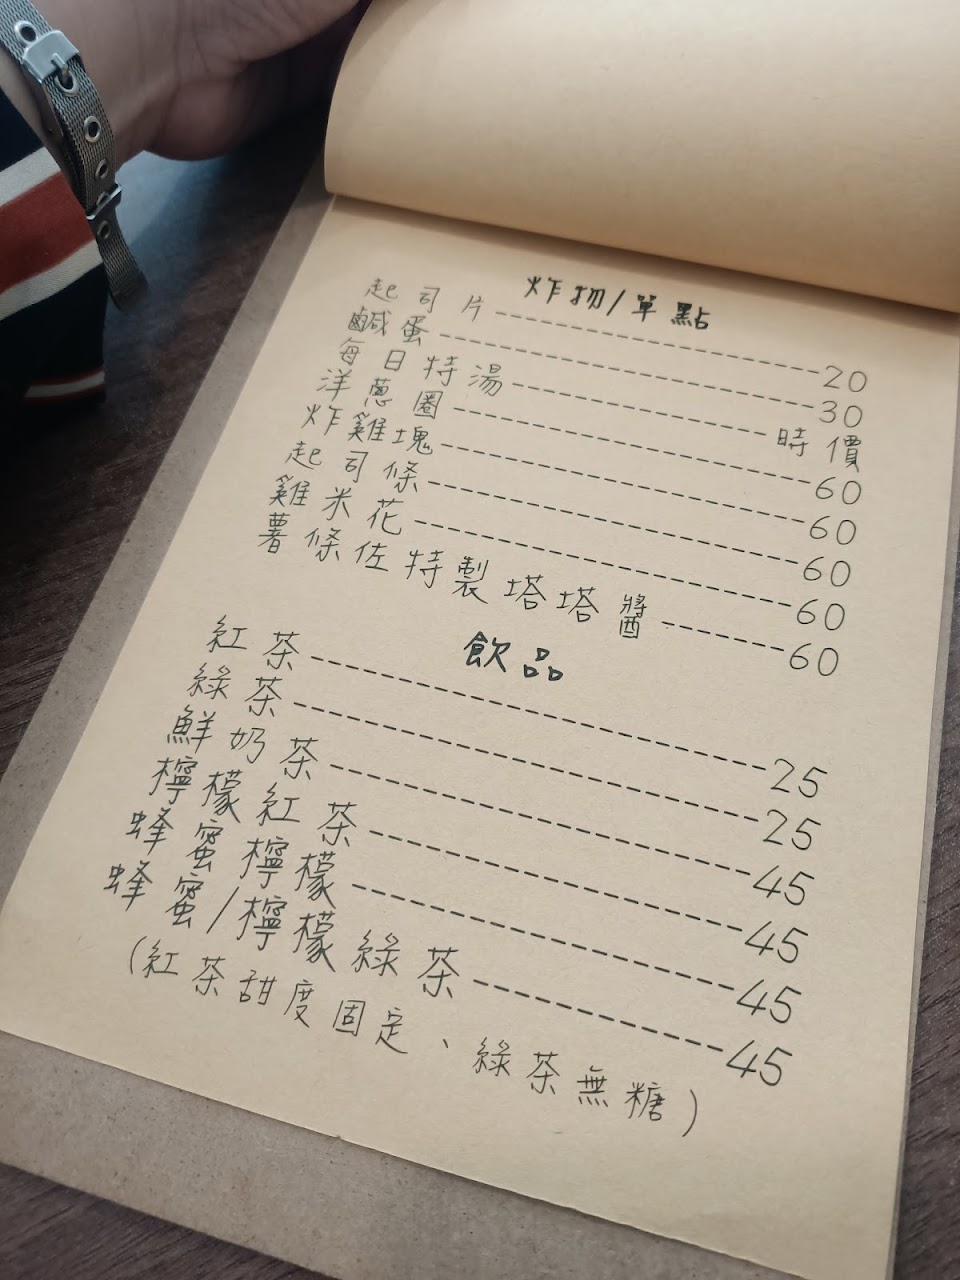 炸物/單點
起司片--------------------20
鹹蛋--------------------30
每日特湯--------------------時價
洋蔥圈--------------------60
炸雞塊--------------------60
起司條--------------------60
雞米花--------------------60
薯條佐特製塔塔醬-------60
飲品
紅茶--------------------25
綠茶--------------------25
鮮奶茶--------------------45
檸檬紅茶--------------------45
蜂蜜檸檬--------------------45
蜂蜜/檸檬綠茶------------45
(紅茶甜度固定、綠茶無糖)